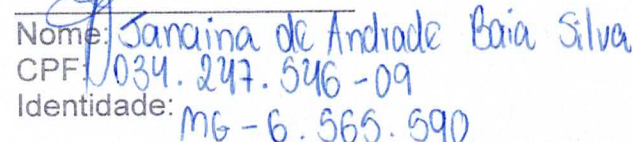 Nome: Janaina de Andrade Baia Silva
CPF: 034.247.546-09
Identidade: MG-6.565.590